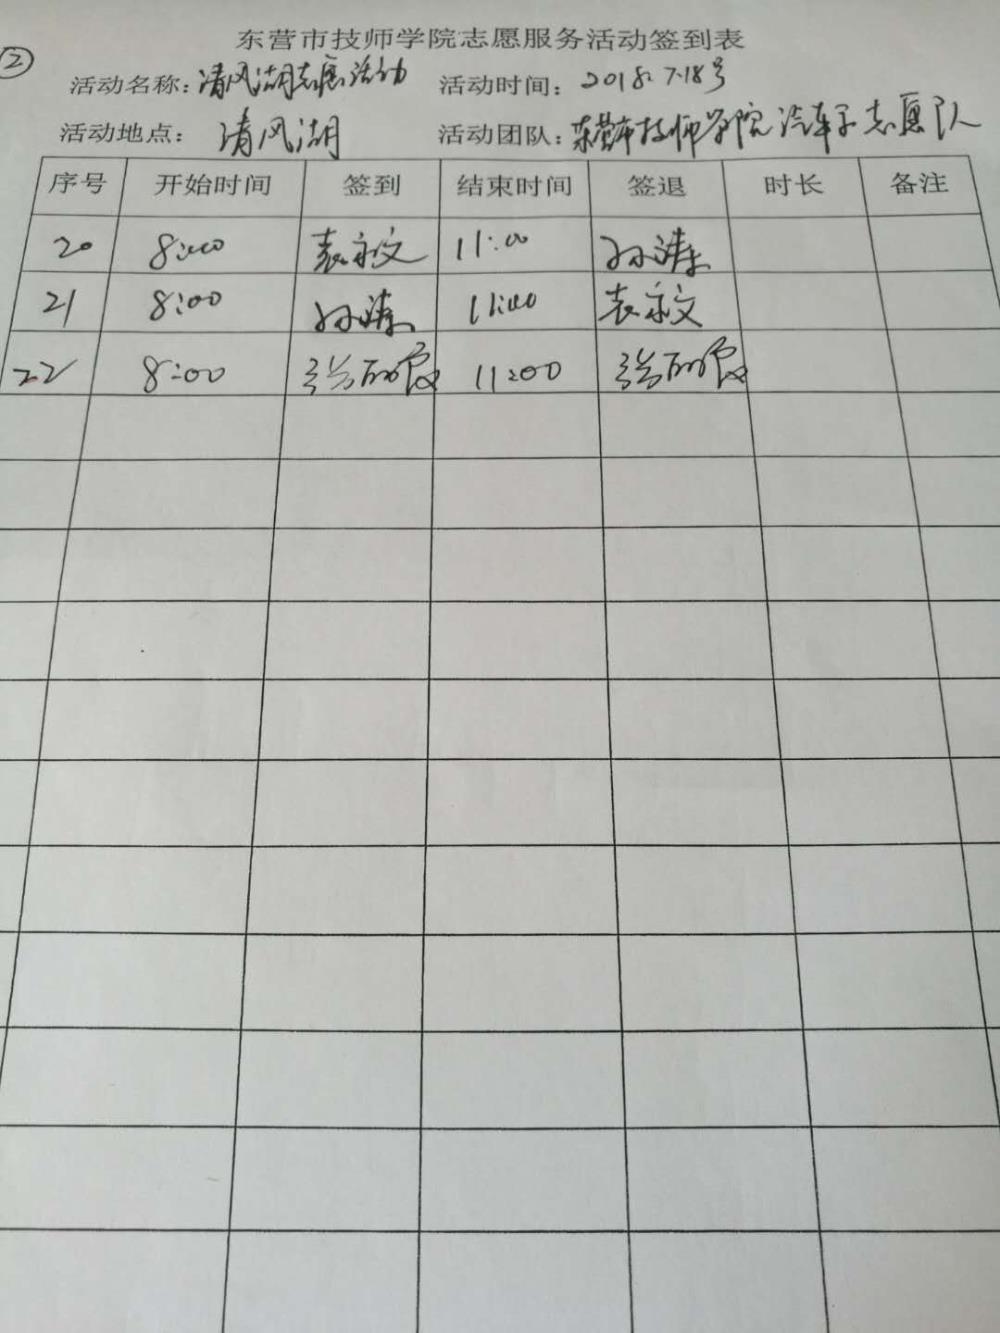 ②
东营市技师学院志愿服务活动签到表
活动名称：清风湖志愿活动 活动时间：2018.7.18号
活动地点：清风湖 活动团队：东营市技师学院汽车系志愿队
序号 开始时间 签到 结束时间 签退 时长 备注
20 8:00 袁永文 11:00 孙涛
21 8:00 孙涛 11:00 袁永文
22 8:00 张 11:00 张